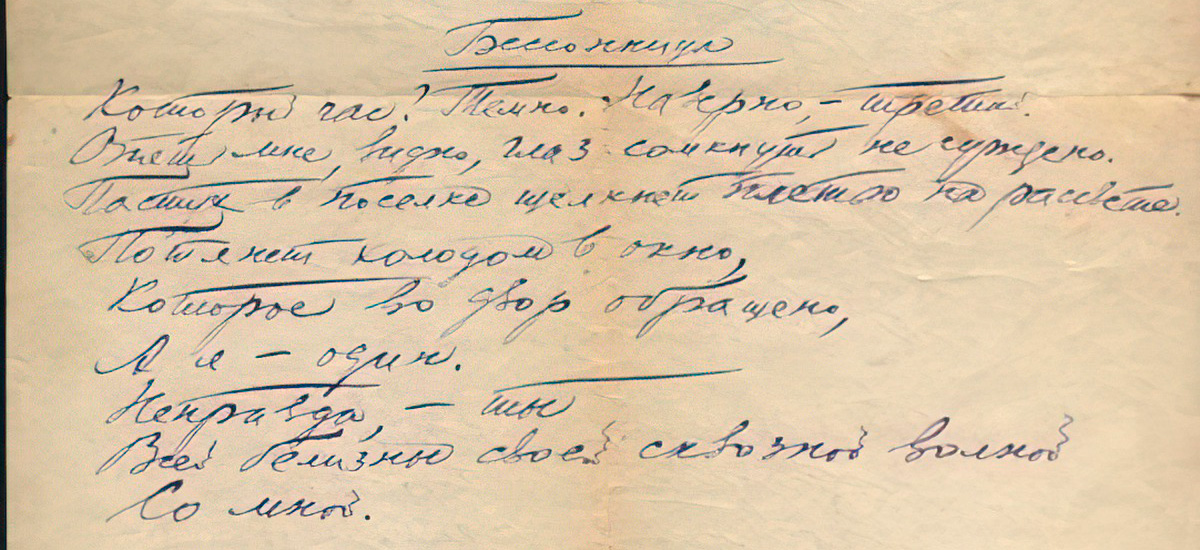 Бессонница
Который час? Темно. Наверно, – третий.
Опять мне, видно, глаз сомкнуть не суждено.
Пастух в поселке щелкнет плетью на рассвете.
Потянет холодом в окно,
Которое во двор обращено,
А я – один.
Неправда, – ты
Всей белизны своей сквозной волной
Со мной.